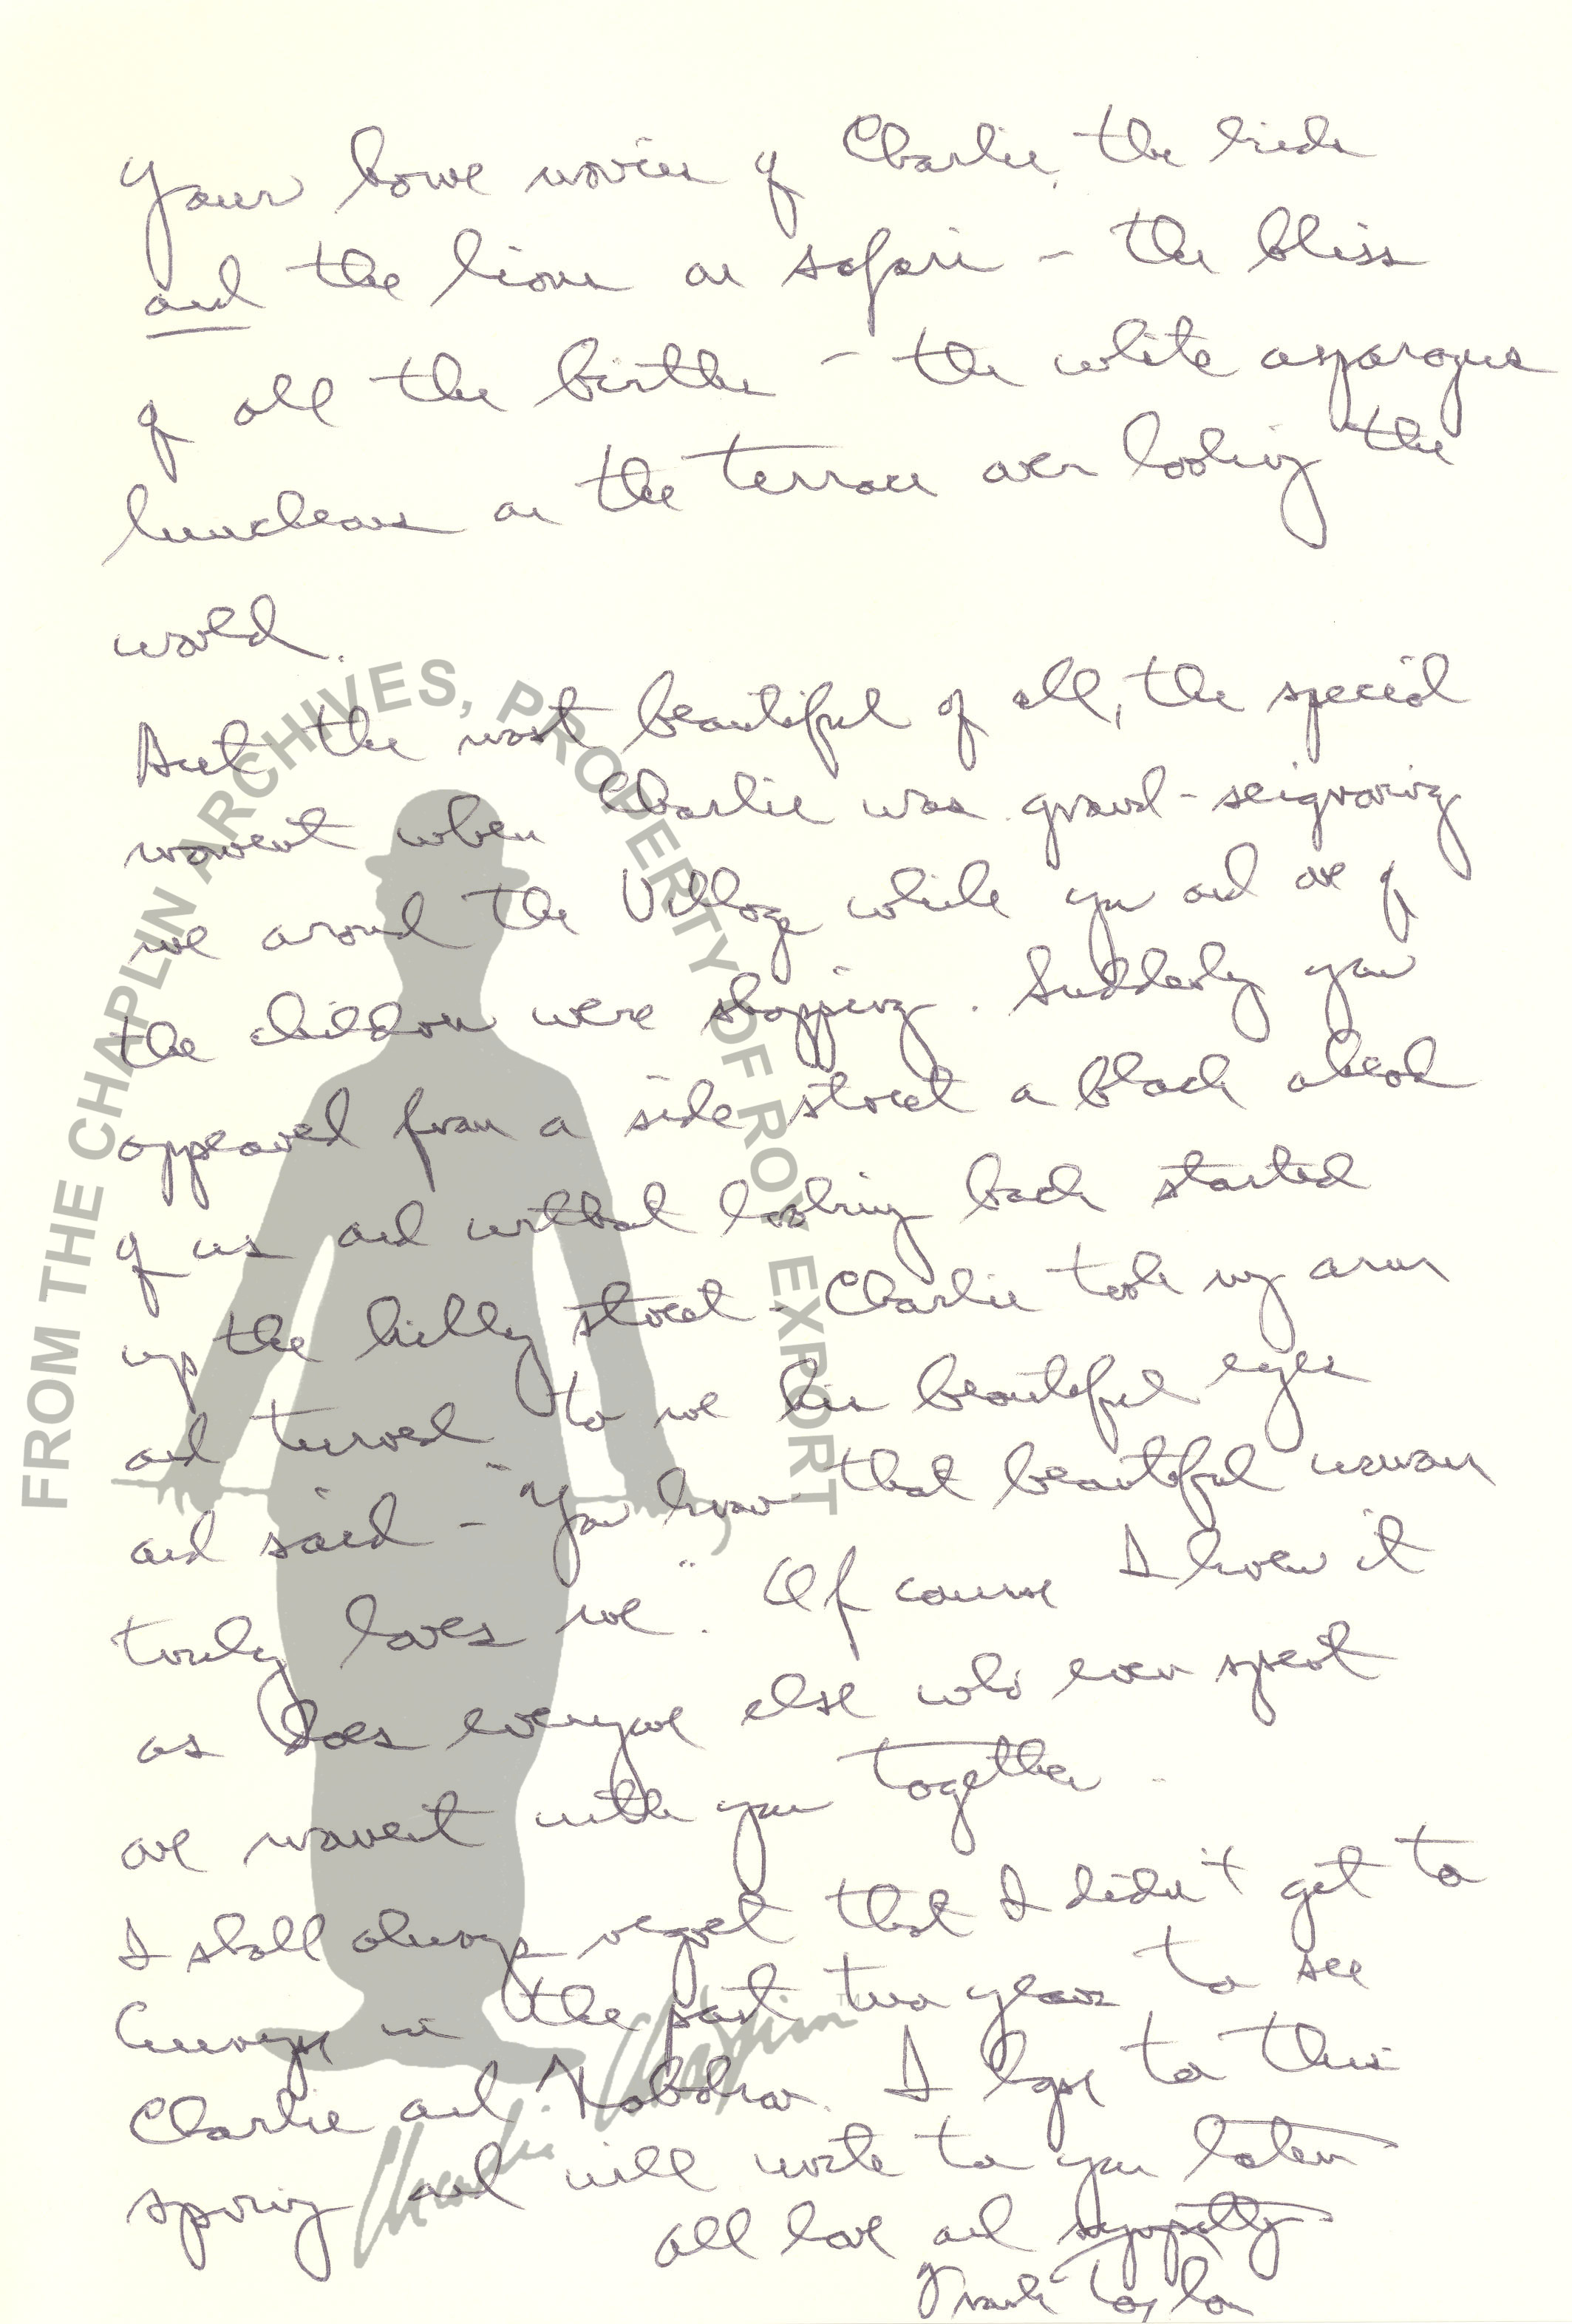 Your home movies of Charlie, the kids
and the lions on safari - the bliss
of all the births - the white asparagus
luncheons on the terrace over looking the
world.
But the most beautiful of all, the special
moment when Charlie was grand-seignoring
me around the Village while you and one of
the children were shopping. Suddenly you
appeared from a side street a block ahead
of us and without looking back started
up the hilly street - Charlie took my arm
and turned to me his beautiful eyes
and said - "You know that beautiful woman
truly loves me". Of course I knew it
as does everyone else who ever spent
one moment with you together.
I shall always regret that I didn't get to
Europe in the past two years to see
Charlie and Nabokov. I hope to this
spring and will write to you later
all love and sympathy
Frank Taylor
FROM THE CHAPLIN ARCHIVES, PROPERTY OF ROY EXPORT
Charlie Chaplin